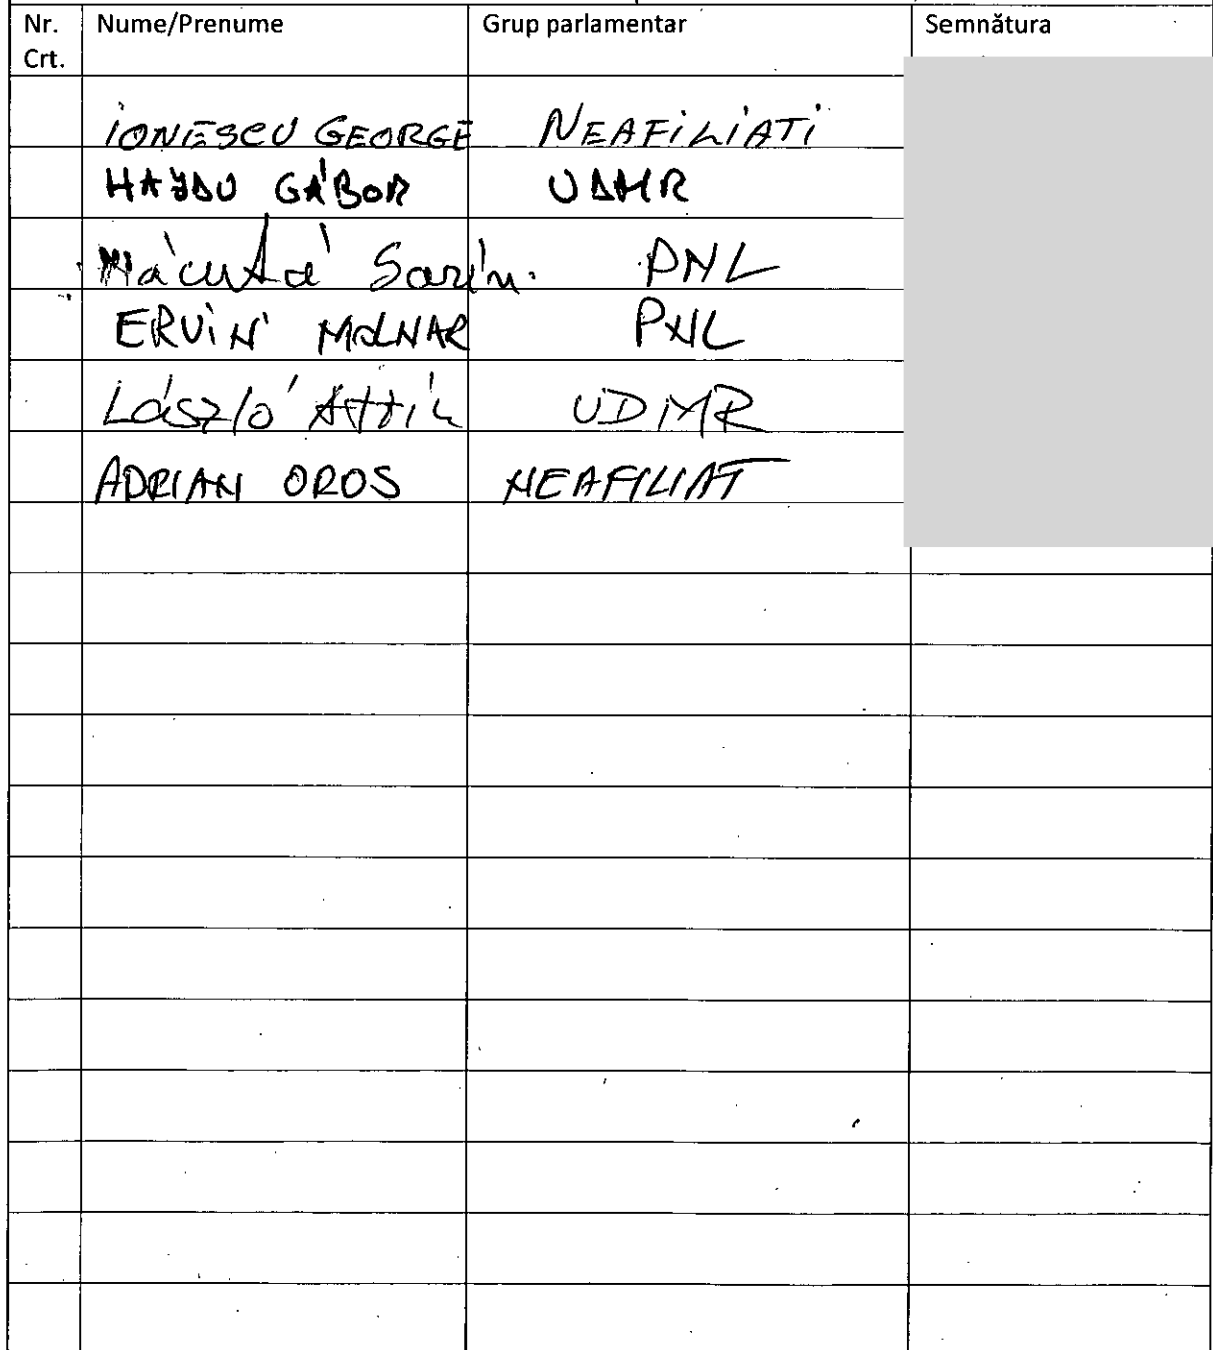 Nr. Crt. Nume/Prenume Grup parlamentar Semnătura
IONESCU GEORGE NEAFILIATI
HAJDU GÁBOR UDMR
Măcuță Sorin PNL
ERVIN MOLNAR PNL
László Attila UDMR
ADRIAN OROS NEAFILIAT